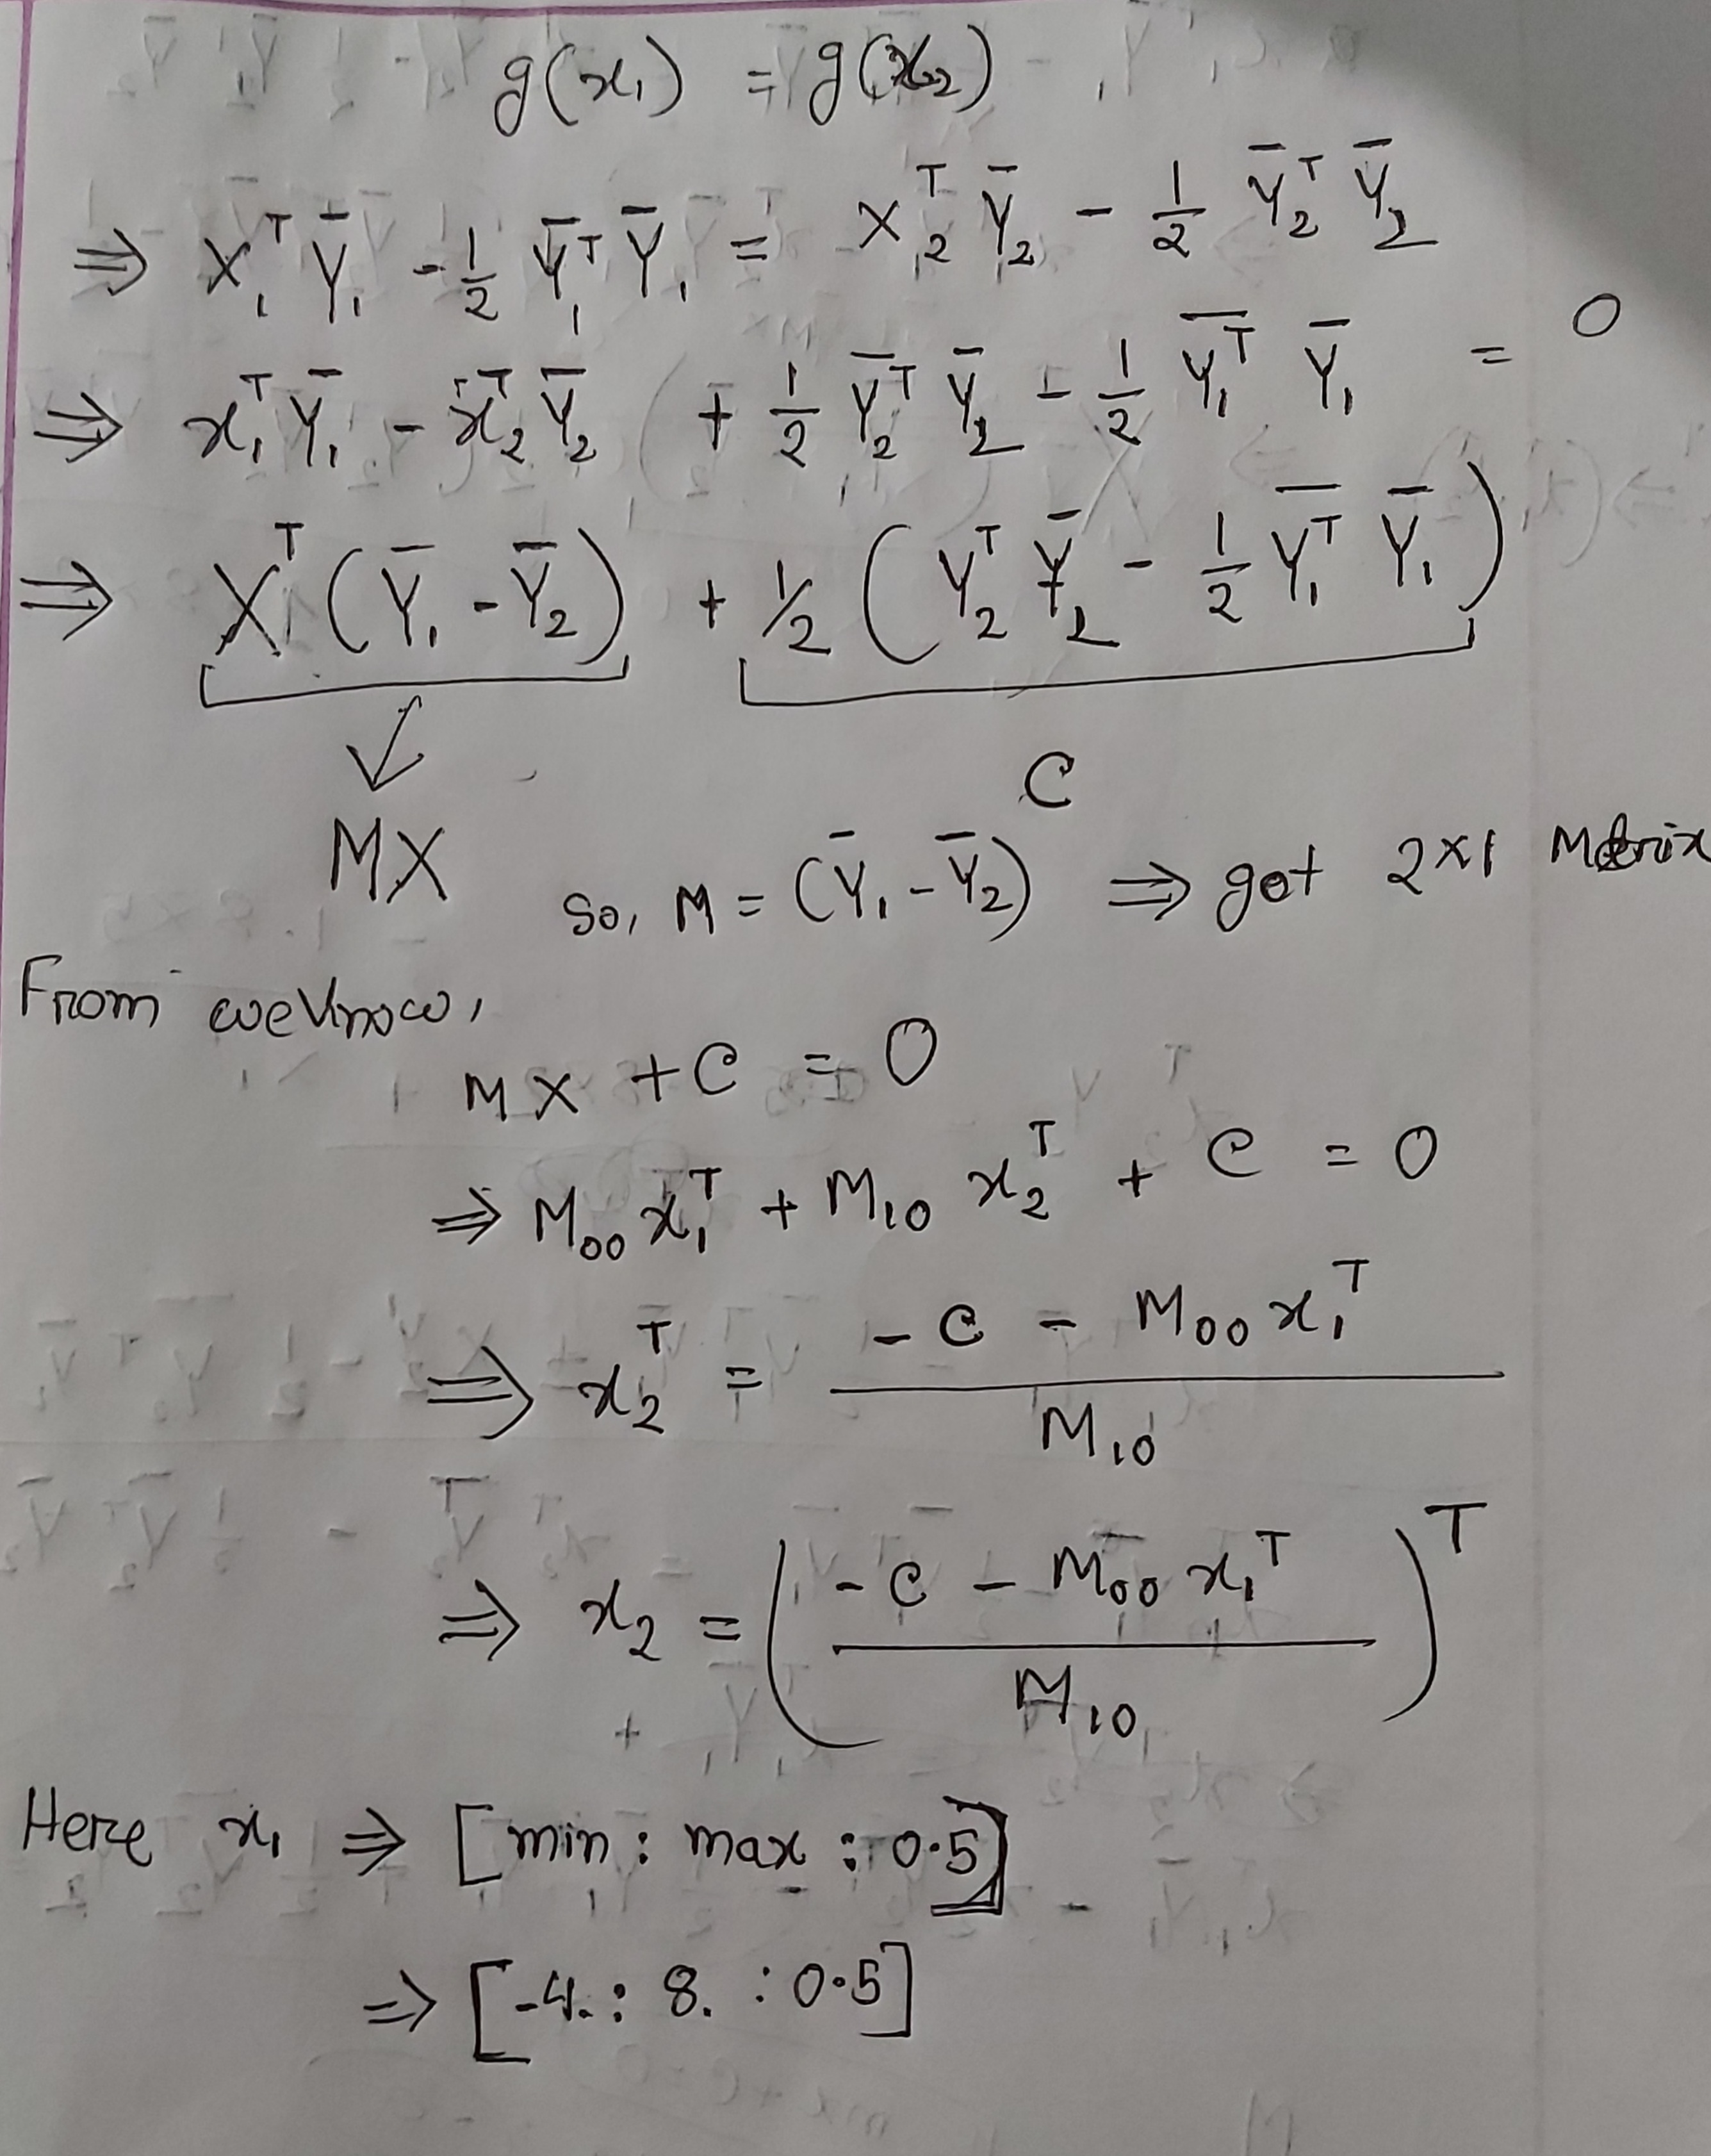 g(x₁) = g(x₂)
⇒ X₁ᵀ Ȳ₁ - ½ Ȳ₁ᵀ Ȳ₁ = X₂ᵀ Ȳ₂ - ½ Ȳ₂ᵀ Ȳ₂
⇒ x₁ᵀ Ȳ₁ - x₂ᵀ Ȳ₂ + ½ Ȳ₂ᵀ Ȳ₂ - ½ Ȳ₁ᵀ Ȳ₁ = 0
⇒ Xᵀ (Ȳ₁ - Ȳ₂) + ½ (Y₂ᵀ Ȳ₂ - ½ Ȳ₁ᵀ Ȳ₁)
C
MX
So, M = (Ȳ₁ - Ȳ₂) ⇒ got 2×1 Matrix
From we know,
MX + C = 0
⇒ M₀₀ x₁ᵀ + M₁₀ x₂ᵀ + C = 0
⇒ x₂ᵀ = (-C - M₀₀ x₁ᵀ) / M₁₀
⇒ x₂ = ((-C - M₀₀ x₁ᵀ) / M₁₀)ᵀ
Here x₁ ⇒ [min : max : 0.5]
⇒ [-4. : 8. : 0.5]